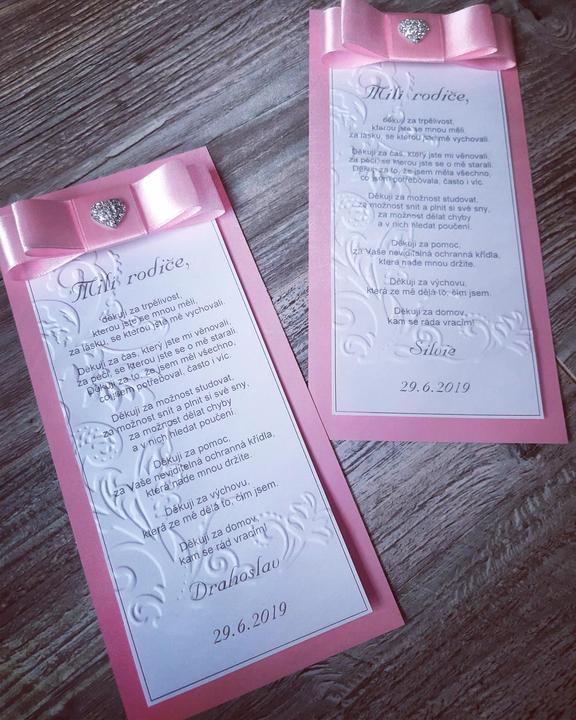 Milí rodiče,
děkuji za trpělivost,
kterou jste se mnou měli,
za lásku, se kterou jste mě vychovali.
Děkuji za čas, který jste mi věnovali,
za péči, se kterou jste se o mě starali.
Děkuji za to, že jsem měl všechno,
co jsem potřeboval, často i víc.
Děkuji za možnost studovat,
za možnost snít a plnit si své sny,
za možnost dělat chyby
a v nich hledat poučení.
Děkuji za pomoc,
za Vaše neviditelná ochranná křídla,
která nade mnou držíte.
Děkuji za výchovu,
která ze mě dělá to, čím jsem.
Děkuji za domov,
kam se rád vracím!
Drahoslav
29.6.2019
Milí rodiče,
děkuji za trpělivost,
kterou jste se mnou měli,
za lásku, se kterou jste mě vychovali.
Děkuji za čas, který jste mi věnovali,
za péči, se kterou jste se o mě starali.
Děkuji za to, že jsem měla všechno,
co jsem potřebovala, často i víc.
Děkuji za možnost studovat,
za možnost snít a plnit si své sny,
za možnost dělat chyby
a v nich hledat poučení.
Děkuji za pomoc,
za Vaše neviditelná ochranná křídla,
která nade mnou držíte.
Děkuji za výchovu,
která ze mě dělá to, čím jsem.
Děkuji za domov,
kam se ráda vracím!
Silvie
29.6.2019